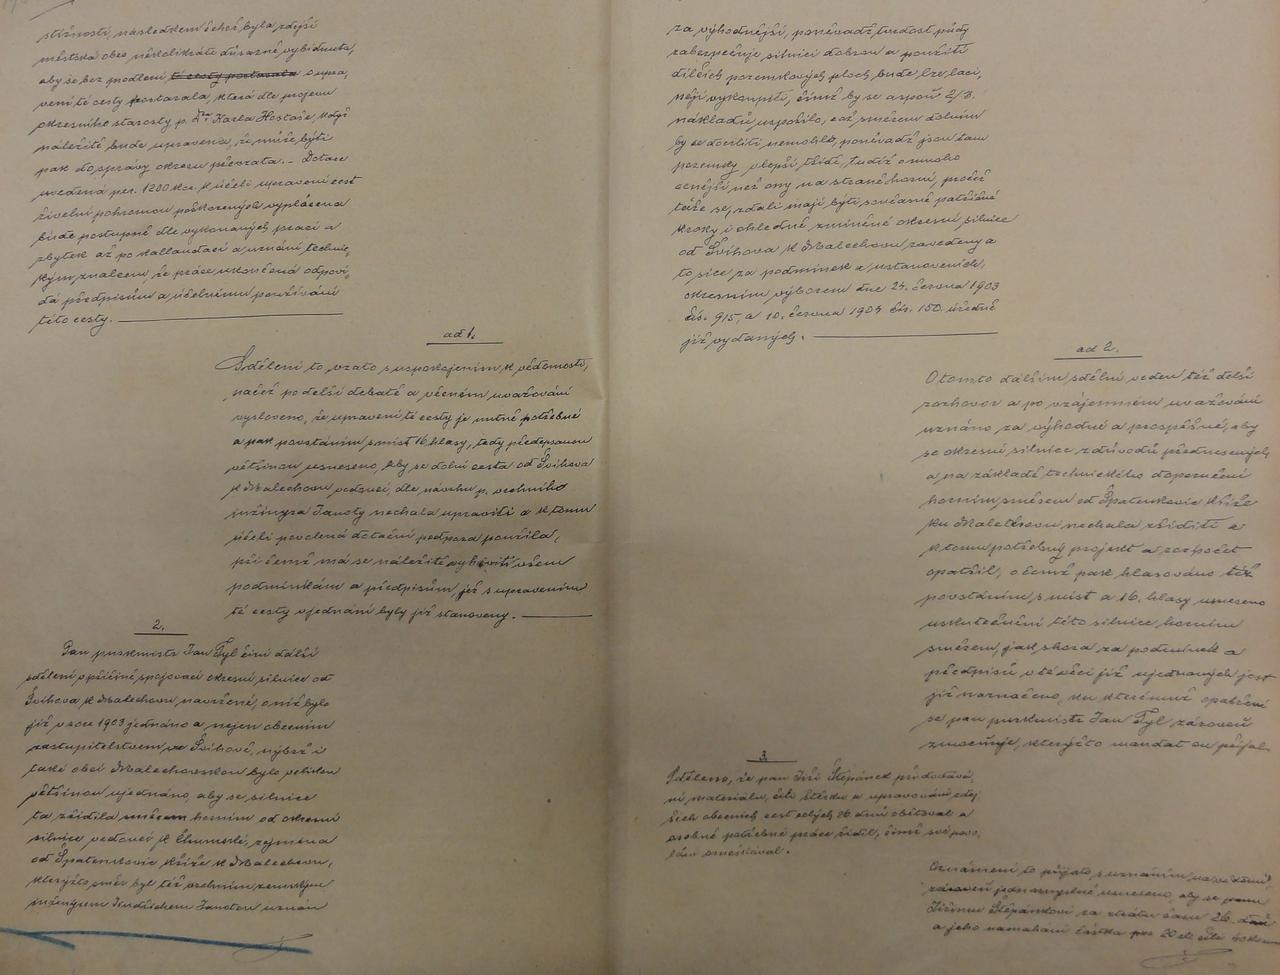 stížnosti, následkem čehož byla zdejší
městská obec několikráte důrazně vybídnuta,
aby se bez prodlení té cesty postarala o upra,
vení té cesty postarala, která dle projevu
okresního starosty p. Dra. Karla Hostaše, když
náležitě bude upravena, že může býti
pak do správy okresu převzata. – Dotace
uvedená per. 1200 Kor. k účeli upravení cest
živelní pohromou poškozených vyplácena
bude postupně dle vykonaných prací a
zbytek až po kollaudaci a uznání technic,
kým znalcem, že práce ukončená odpoví,
dá předpisům a účelnému používání
této cesty.
ad 1.
Sdělení to vzato s uspokojením k vědomosti,
načež po delší debatě a věcném uvažování
vysloveno, že upravení té cesty je nutně potřebné
a pak povstáním s míst 16 hlasy, tedy předepsanou
většinou usneseno, aby se dolní cesta od Švihova
k Malechovu vedoucí, dle návrhu p. vrchního
inžinýra Janoty nechala upraviti a k tomu
účeli povolená dotační podpora použila,
při čemž má se náležitě vyhověti všem
podmínkám a předpisům, jež s upravením
té cesty v jednání byly již stanoveny.
2.
Pan purkmistr Jan Tyl činí další
sdělení v příčině spojovací okresní silnice od
Švihova k Malechovu navržené, o níž bylo
již v roce 1903 jednáno a nejen obecním
zastupitelstvem ve Švihově, nýbrž i
také obcí Malechovskou bylo velikou
většinou ujednáno, aby se silnice
ta zřídila směrem horním od okresní
silnice vedoucí k Chumské, zejména
od Špatenkovic kříže k Malechovu,
kterýžto směr byl též vrchním zemským
inženýrem Jindřichem Janotou uznán
za výhodnější, poněvadž tvrdost půdy
zabezpečuje silnici dobrou a použití
dílčích pozemkových ploch bude lze laci,
něji vykoupiti, čímž by se aspoň 2/3.
nákladu uspořilo, což směrem dolním
by se docíliti nemohlo, poněvadž jsou tam
pozemky v lepší třídě, tudíž o mnoho
cenější než ony na straně horní, pročež
táže se, zdali mají býti současně patřičné
kroky i ohledně zmíněné okresní silnice
od Švihova k Malechovu zavedeny a
to sice za podmínek a ustanoveních,
okresním výborem dne 24. června 1903
čís. 915, a 10. června 1904 čís. 150. úředně
již vydaných.
ad 2.
O tomto dalším sdělní veden též delší
rozhovor a po vzájemném uvažování
uznáno za výhodné a prospěšné, aby
se okresní silnice z důvodů přednesených
a na základě technického doporučení
horním směrem od Špatenkovic kříže
ku Malechovu nechala zříditi a
k tomu potřebný projekt a rozpočet
opatřil, o čemž pak hlasováno též
povstáním s míst a 16. hlasy usneseno
uskutečnění této silnice horním
směrem, jak shora za podmínek a
předpisů v té věci již ujednaných jest
již naznačeno, ku kterémuž opatření
se pan purkmistr Jan Tyl zároveň
zmocňuje, kterýžto mandat on přijal.
3.
Sděleno, že pan Jiří Štěpánek při dodává,
ní materiálu, čili štěrku a upravování zdej,
ších obecních cest celých 26 dnů obětoval a
osobně potřebné práce řídil, čímž své povo,
lání omeškával.
Oznámení to přijato s uznáním na vědomí,
zároveň jednomyslně usneseno, aby se panu
Jiřímu Štěpánkovi za ztrátu času 26. dnů
a jeho namahání částka per 20 zl. čili 40 Kor